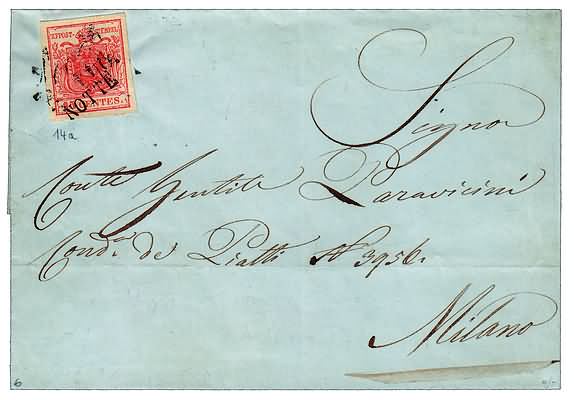 KKPOST-STEMPEL
NOTTE
CENTES.
14a
Signor
Conte Gentile Paravicini
Cond.a de Piatti N 3956.
Milano
6